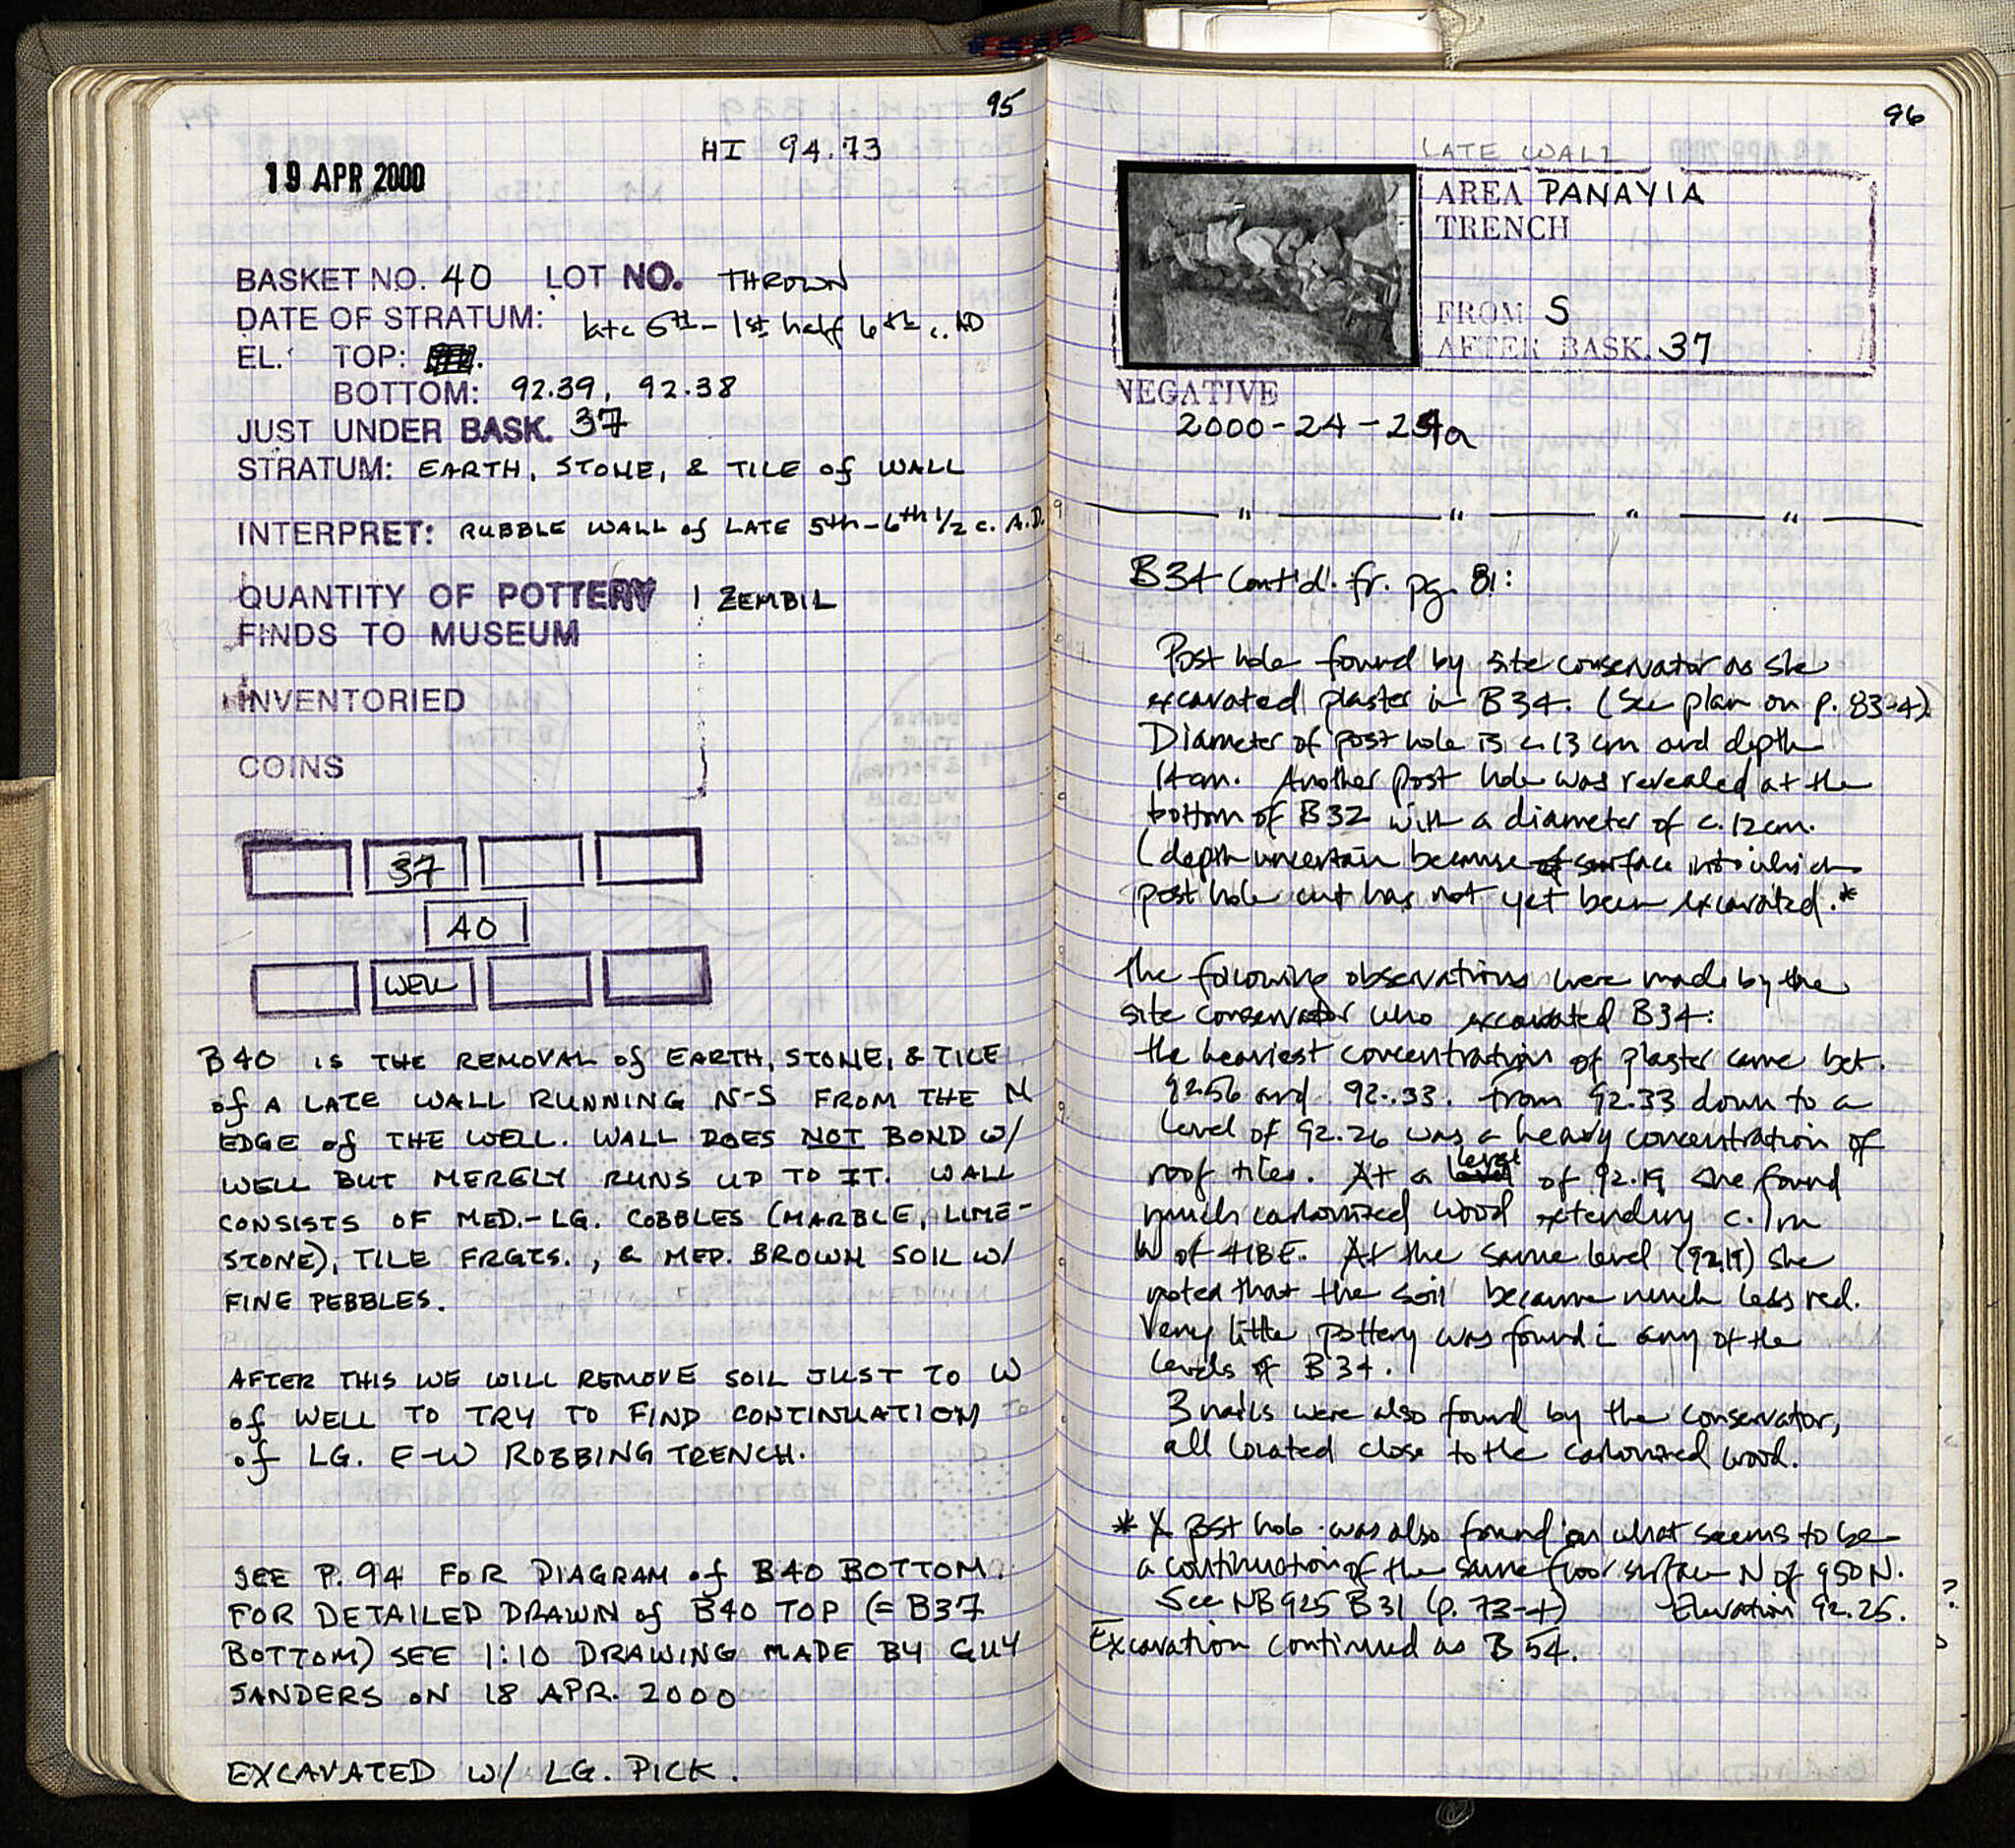 95
HI 94.73
19 APR 2000
BASKET NO. 40 LOT NO. THROWN
DATE OF STRATUM: late 5th - 1st half 6th c. AD
EL. TOP:
BOTTOM: 92.39, 92.38
JUST UNDER BASK. 37
STRATUM: EARTH, STONE, & TILE of WALL
INTERPRET: RUBBLE WALL of LATE 5th-6th 1/2 c. A.D.
QUANTITY OF POTTERY 1 ZEMBIL
FINDS TO MUSEUM
INVENTORIED
COINS
37
40
WELL
B40 IS THE REMOVAL of EARTH, STONE, & TILE
of A LATE WALL RUNNING N-S FROM THE N
EDGE of THE WELL. WALL DOES NOT BOND W/
WELL BUT MERELY RUNS UP TO IT. WALL
CONSISTS OF MED.-LG. COBBLES (MARBLE, LIME-
STONE), TILE FRGTS., & MED. BROWN SOIL W/
FINE PEBBLES.
AFTER THIS WE WILL REMOVE SOIL JUST TO W
of WELL TO TRY TO FIND CONTINUATION
of LG. E-W ROBBING TRENCH.
SEE P. 94 FOR DIAGRAM of B40 BOTTOM.
FOR DETAILED DRAWIN of B40 TOP (= B37
BOTTOM) SEE 1:10 DRAWING MADE BY GUY
SANDERS ON 18 APR. 2000
EXCAVATED W/ LG. PICK.
96
LATE WALL
AREA PANAYIA
TRENCH
FROM S
AFTER BASK. 37
NEGATIVE
2000-24-24a
B34 Cont'd. fr. pg. 81:
Post hole found by site conservator as she
excavated plaster in B34. (See plan on p. 83-4).
Diameter of post hole is c. 13 cm and depth
14cm. Another post hole was revealed at the
bottom of B32 with a diameter of c. 12cm.
(depth uncertain because of surface into which
post hole cut has not yet been excavated.*
The following observations were made by the
site conservator who excavated B34:
the heaviest concentration of plaster came bet.
92.56 and 92.33. From 92.33 down to a
level of 92.26 was a heavy concentration of
roof tiles. At a level of 92.19 she found
much carbonized wood extending c. 1m
W of 41BE. At the same level (92.19) she
noted that the soil became much less red.
Very little pottery was found i any of the
levels of B34.
3 nails were also found by the conservator,
all located close to the carbonized wood.
* A post hole was also found on what seems to be
a continuation of the same floor surface N of 950N.
See NB925 B31 (p. 73-4) Elevation 92.25. ?
Excavation continued as B54.